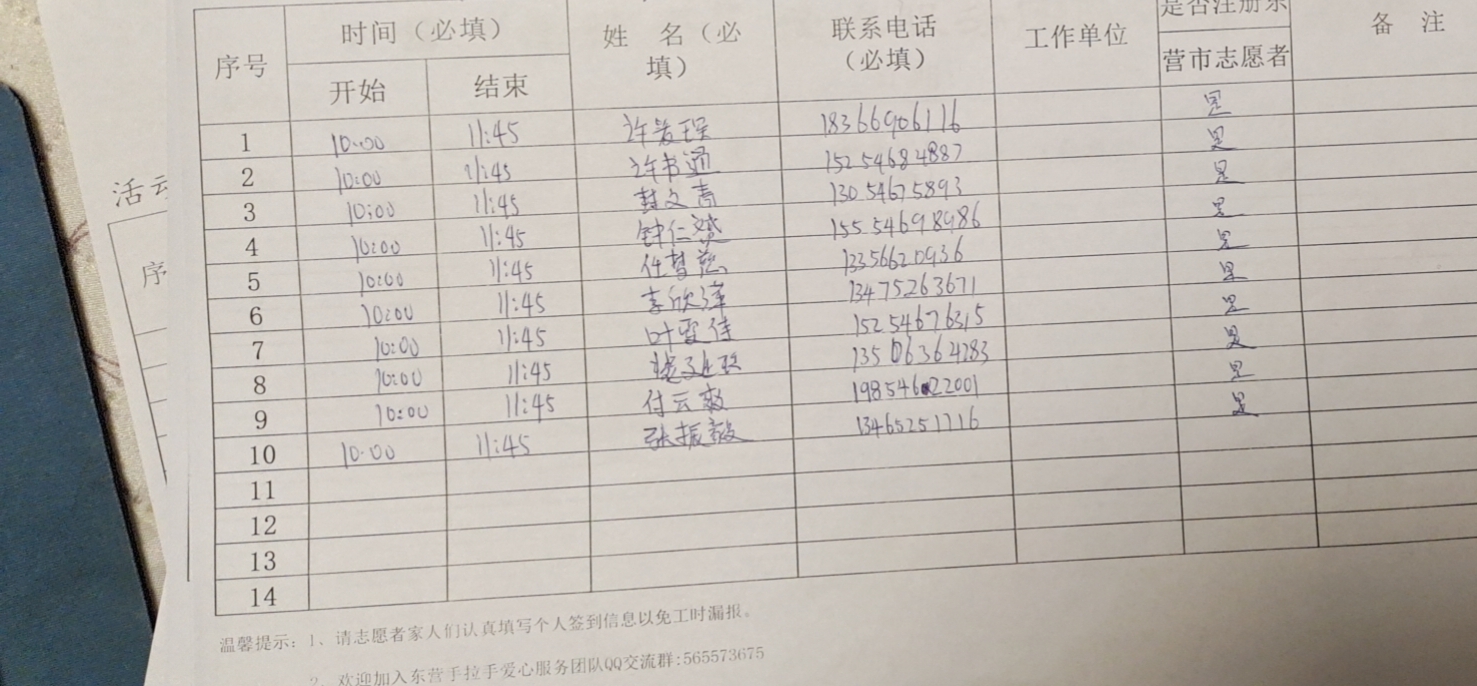 时间（必填） 姓 名（必填） 联系电话（必填） 工作单位 是否注册东营市志愿者 备 注
序号 开始 结束
1 10:00 11:45 18366906116 是
2 10:00 11:45 许书通 15254684887 是
3 10:00 11:45 封文青 13054675893 是
4 10:00 11:45 钟仁斌 15554698986 是
5 10:00 11:45 任梦慈 13356620936 是
6 10:00 11:45 李欣泽 13475263671 是
7 10:00 11:45 叶雯佳 15254676315 是
8 10:00 11:45 13506364283 是
9 10:00 11:45 付云 19854622001 是
10 10:00 11:45 张振毅 13465251716 是
11
12
13
14
活动
序
温馨提示：1、请志愿者家人们认真填写个人签到信息以免工时漏报。
2、欢迎加入东营手拉手爱心服务团队QQ交流群:565573675